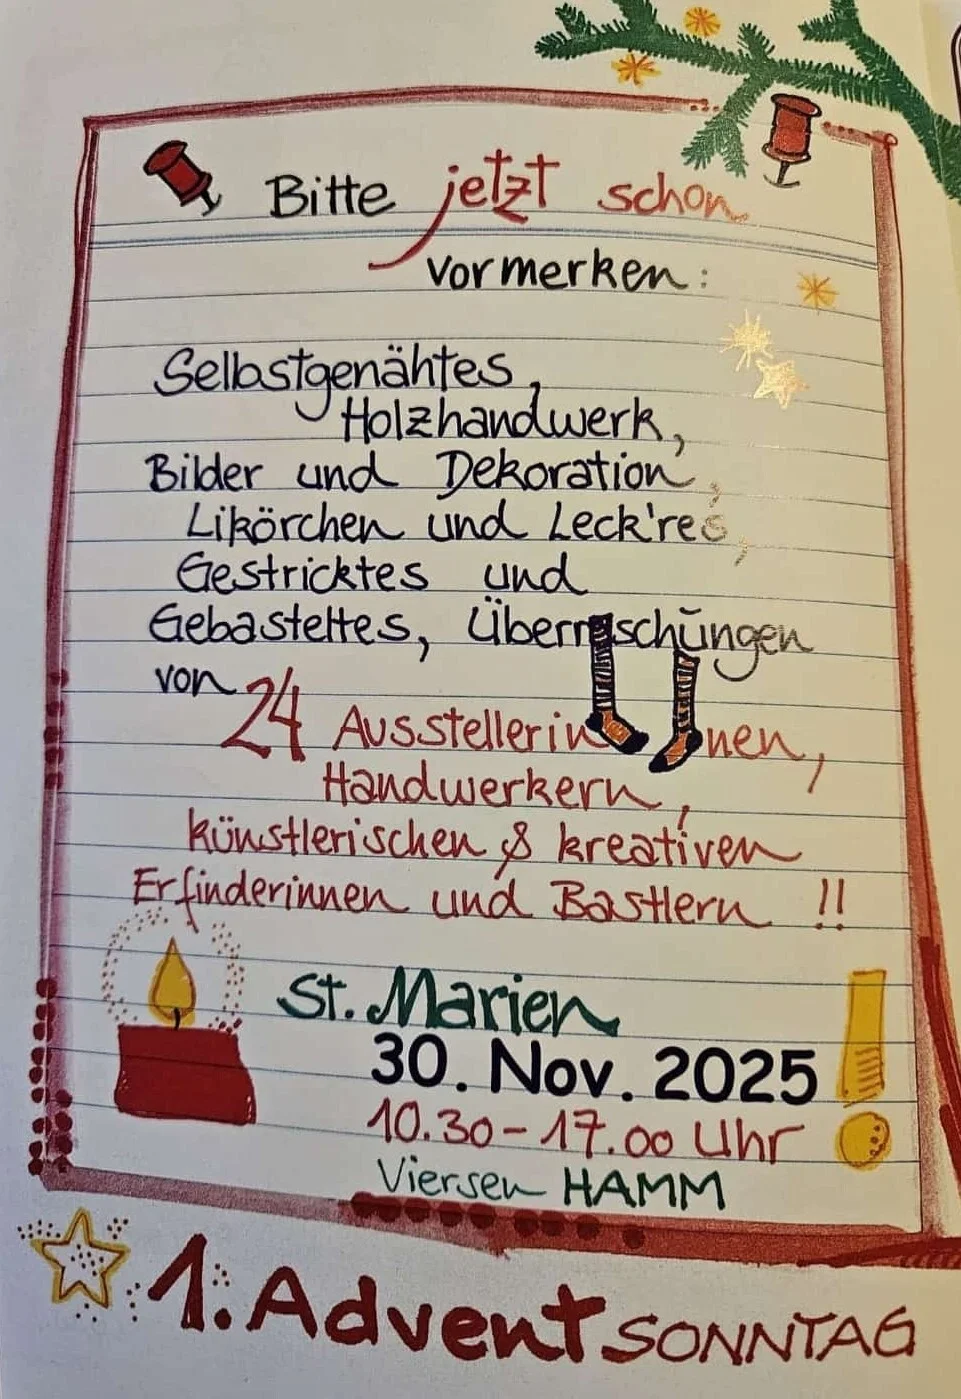 Bitte jetzt schon
vormerken:
Selbstgenähtes,
Holzhandwerk,
Bilder und Dekoration,
Likörchen und Leck'res,
Gestricktes und
Gebasteltes, Überraschŭngen
von 24 Ausstellerinnen,
Handwerkern,
künstlerischen & kreativen
Erfinderinnen und Bastlern !!
St. Marien
30. Nov. 2025
10.30-17.00 Uhr
Viersen HAMM
1. Advent SONNTAG